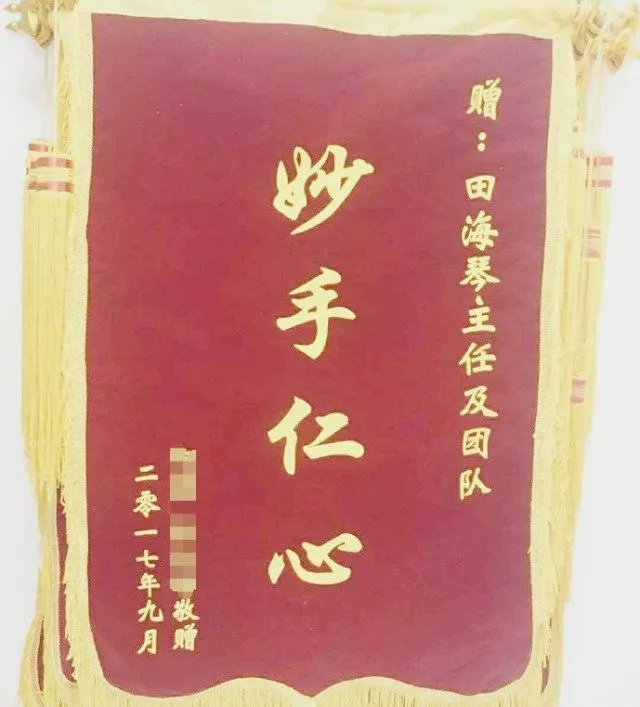 赠：田海琴主任及团队
妙手仁心
敬赠
二零一七年九月